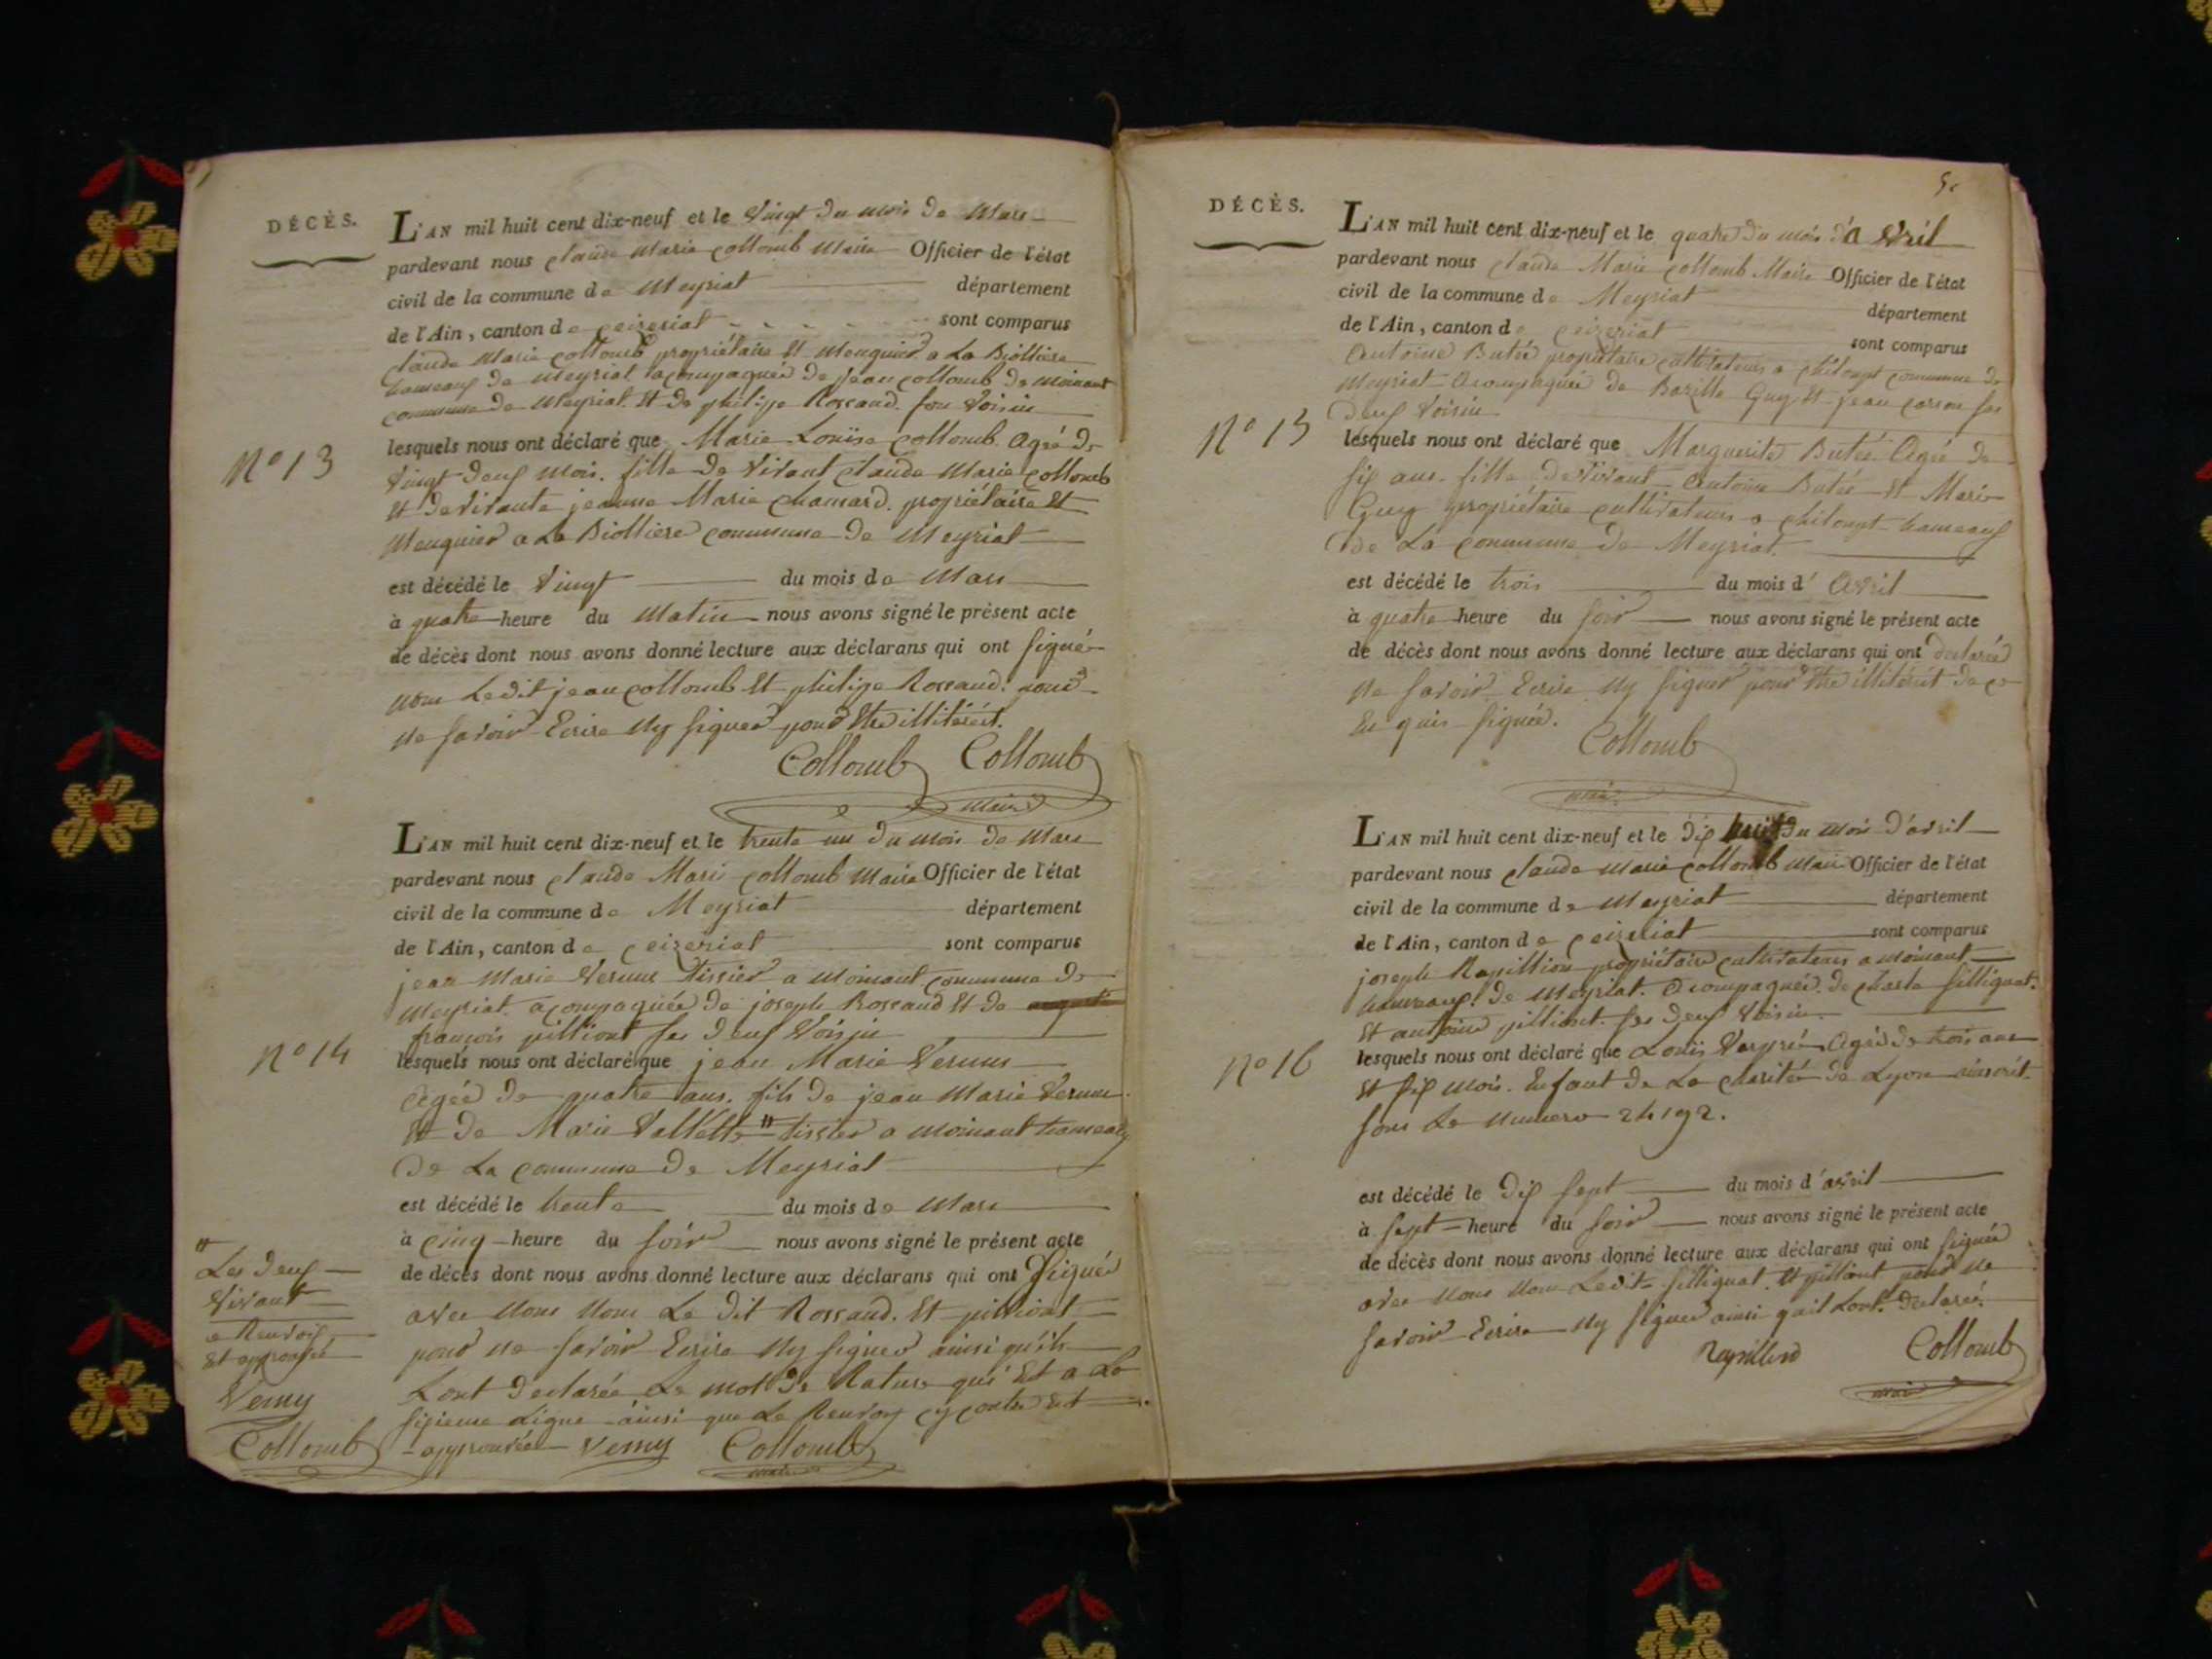 DÉCÈS.
L'AN mil huit cent dix-neuf et le vingt du mois de Mars
pardevant nous claude Marie Collomb Maire Officier de l'état
civil de la commune de Meyriat département
de l'Ain, canton de ceizeriat sont comparus
claude Marie Collomb propriétaire Et Meuguier a La Biolliere
hameaux de Meyriat acompagnée de jean Collomb de moinant
commune de Meyriat. Et de philippe Rossand. son Voisin
N° 13
lesquels nous ont déclaré que Marie Louise Collomb Agée de
Vingt deux mois. fille de Vivant claude Marie Collomb
Et de Vivante jeanne Marie Chanard. propriétaire Et
Meuguier a La Biolliere commune de Meyriat
est décédé le Vingt du mois de Mars
à quatre heure du Matin nous avons signé le présent acte
de décès dont nous avons donné lecture aux déclarans qui ont signée
non Ledit jean Collomb Et philipe Rossand. pour
ne savoir Ecrire Ny signer pour Etre illitérért.
Collomb Collomb
maire
L'AN mil huit cent dix-neuf et le trente un du mois de Mars
pardevant nous claude Marie Collomb Maire Officier de l'état
civil de la commune de Meyriat département
de l'Ain, canton de ceizeriat sont comparus
jean Marie Vernus tissier a Moinant commune de
Meyriat. acompagnée de joseph Rossand Et de
françois pilliont ses deux Voisin
N° 14
lesquels nous ont déclaré que jean Marie Vernus
Agée de quatre ans. fils de jean Marie Vernus
Et de Marie Vallette # tissier a Moinant hameaux
De La commune de Meyriat
est décédé le trente du mois de Mars
à cinq heure du soir nous avons signé le présent acte
de décès dont nous avons donné lecture aux déclarans qui ont signée
avec Nous Non Le dit Rossand. Et pilliont
pour ne savoir Ecrire Ny signer ainsi qu'ils
Lont declarée Le mot de Rature qui Est a La
sixieme Ligne ainsi que Le Renvoy cy contre Est
approuvée Verny Collomb
maire
#
Les deux
Vivant
Renvois
Et approuvé
Verny
Collomb
DÉCÈS.
L'AN mil huit cent dix-neuf et le quatre du mois d'Avril
pardevant nous claude Marie Collomb Maire Officier de l'état
civil de la commune de Meyriat département
de l'Ain, canton de ceizeriat sont comparus
Antoine Butée propriétaire cultivateurs a chiloupt commune de
Meyriat Acompagnée de Bazille Guy Et jean carron ses
deux Voisin
N° 15
lesquels nous ont déclaré que Marguerite Butée Agée de
six ans. fille de Vivant Antoine Butée Et Marie
Guy propriétaire cultivateurs a chiloupt hameaux
de La commune de Meyriat.
est décédé le trois du mois d'Avril
à quatre heure du soir nous avons signé le présent acte
de décès dont nous avons donné lecture aux déclarans qui ont declarée
ne savoir Ecrire Ny signer pour Etre illitérért de ce
En quis signée.
Collomb
maire
L'AN mil huit cent dix-neuf et le dix huit du mois d'avril
pardevant nous claude Marie Collomb Maire Officier de l'état
civil de la commune de Meyriat département
de l'Ain, canton de ceizeriat sont comparus
joseph Rapillion propriétaire cultivateurs a moinant
hameaux de Meyriat. Acompagnée. de charle filliguat.
Et antoine pilliont. ses deux Voisin.
N° 16
lesquels nous ont déclaré que Louis Agée de trois ans
Et six mois. Enfant de La charitée de Lyon
sous Le Numero 24192.
est décédé le dix sept du mois d'avril
à sept heure du soir nous avons signé le présent acte
de décès dont nous avons donné lecture aux déclarans qui ont signée
avec Nous Non Ledit filliguat. Et pilliont pour ne
savoir Ecrire Ny signer ainsi quil Lont. Declarée.
Rapillion Collomb
maire